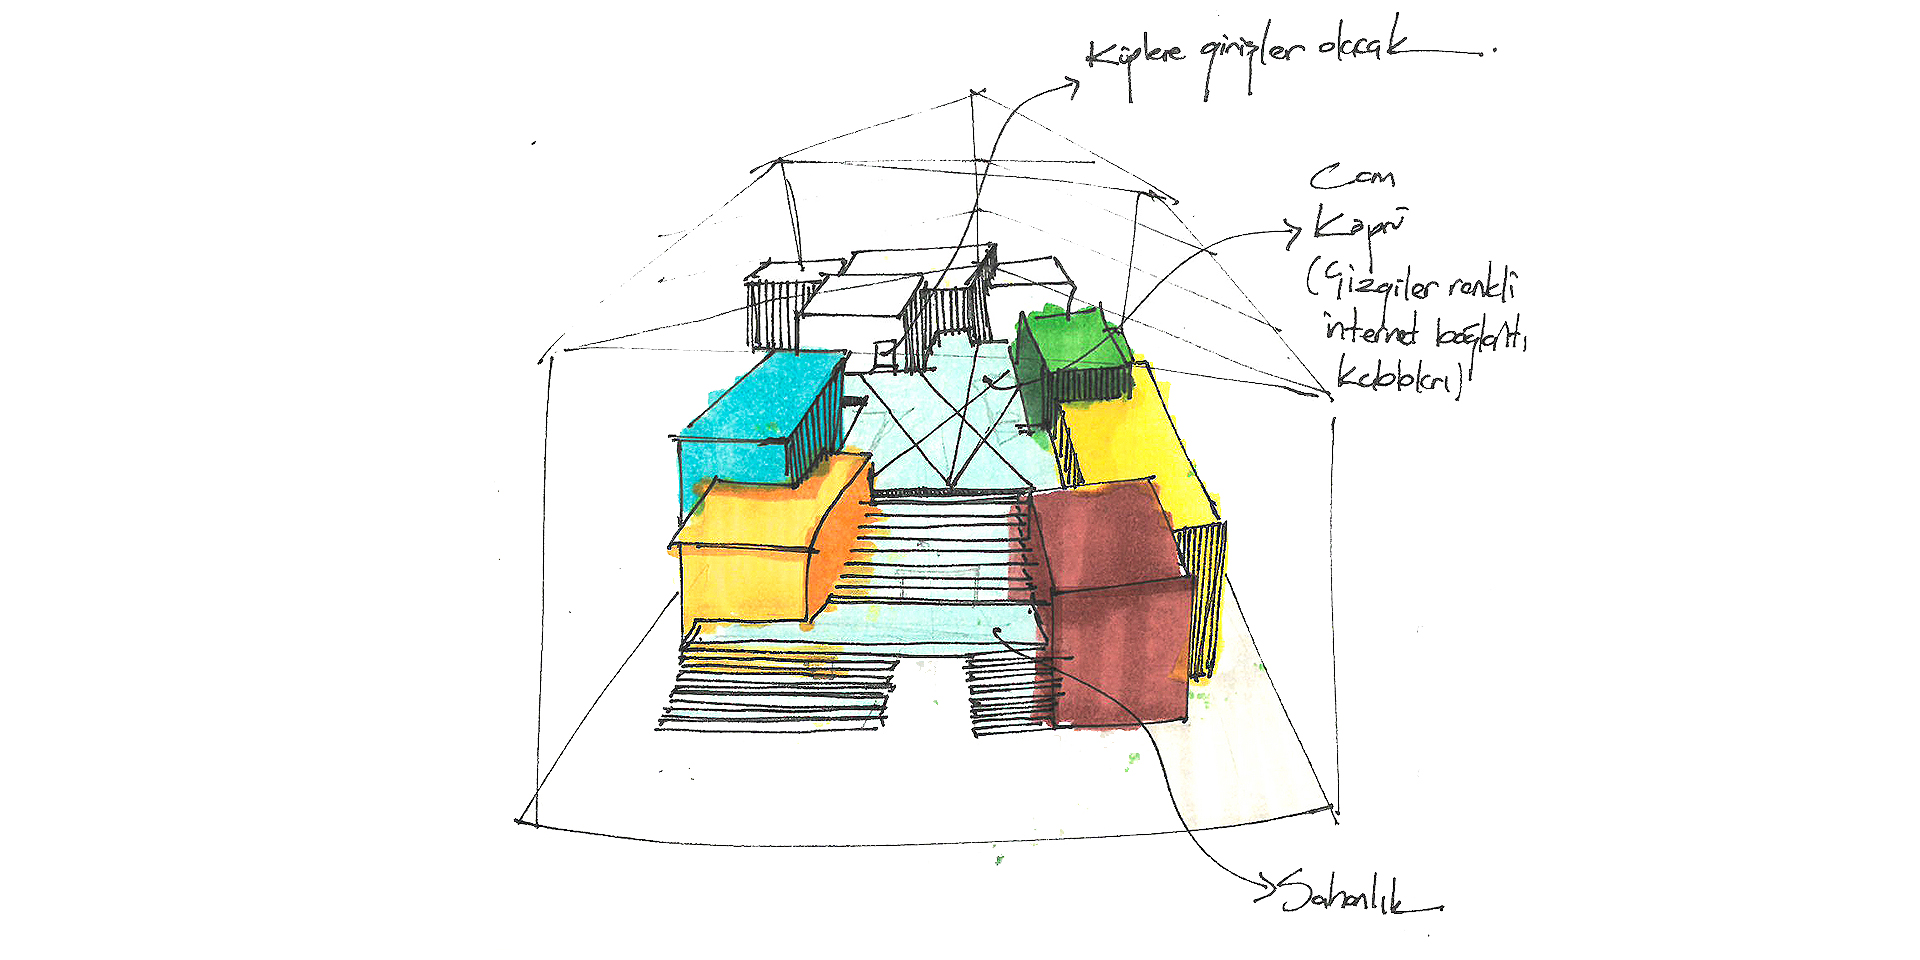 Küplere girişler olacak.
Cam
Köprü
(Çizgiler renkli
internet bağlantı
kabloları)
Sahanlık